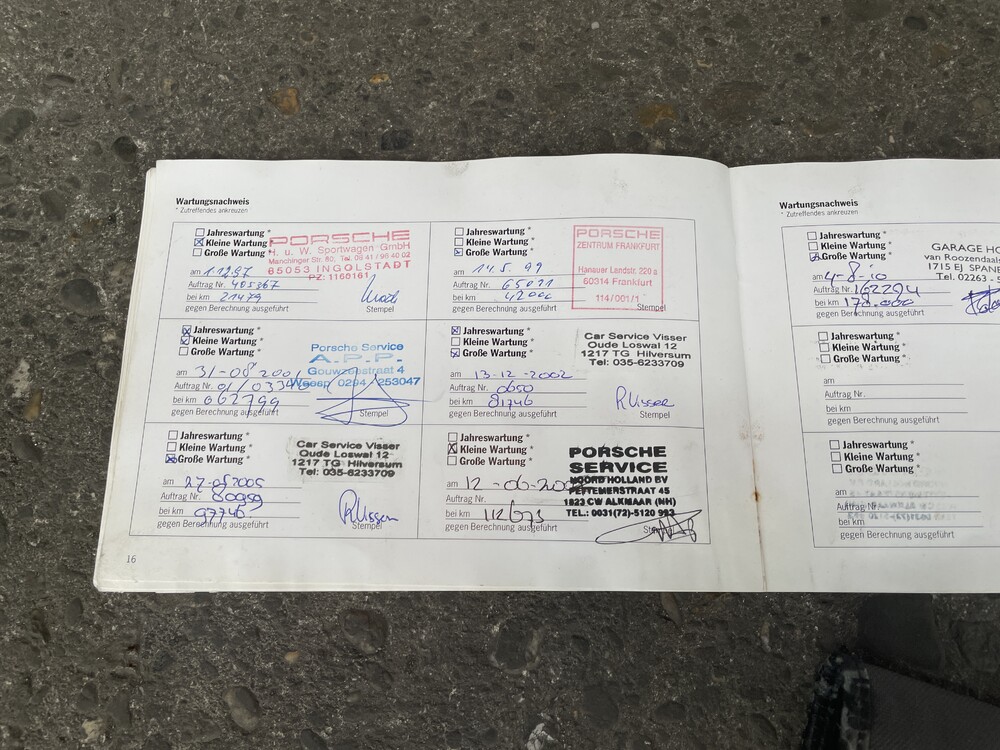 Wartungsnachweis
* Zutreffendes ankreuzen
Jahreswartung *
Kleine Wartung *
Große Wartung *
am 1.12.97
Auftrag Nr. 405367
bei km 21479
gegen Berechnung ausgeführt
Stempel
PORSCHE
H. u. W. Sportwagen GmbH
Manchinger Str. 80, Tel. 08 41 / 96 40 02
85053 INGOLSTADT
PZ: 1160161
Jahreswartung *
Kleine Wartung *
Große Wartung *
am 14.5.99
Auftrag Nr. 65021
bei km 42000
gegen Berechnung ausgeführt
Stempel
PORSCHE
ZENTRUM FRANKFURT
Hanauer Landstr. 220 a
60314 Frankfurt
114/001/1
Jahreswartung *
Kleine Wartung *
Große Wartung *
am 31-08-2001
Auftrag Nr. 01/03346
bei km 062799
gegen Berechnung ausgeführt
Stempel
Porsche Service
A.P.P.
Gouwzeestraat 4
Weesp 0294 / 253047
Jahreswartung *
Kleine Wartung *
Große Wartung *
am 13-12-2002
Auftrag Nr. 0650
bei km 81746
gegen Berechnung ausgeführt
Stempel
Car Service Visser
Oude Loswal 12
1217 TG Hilversum
Tel: 035-6233709
RVisser
Jahreswartung *
Kleine Wartung *
Große Wartung *
am
Auftrag Nr. 80959
bei km 97746
gegen Berechnung ausgeführt
Stempel
Car Service Visser
Oude Loswal 12
1217 TG Hilversum
Tel: 035-6233709
RVisser
Jahreswartung *
Kleine Wartung *
Große Wartung *
am 12-06-
Auftrag Nr.
bei km 112673
gegen Berechnung ausgeführt
PORSCHE
SERVICE
NOORD HOLLAND BV
PETTEMERSTRAAT 45
1823 CW ALKMAAR (NH)
TEL.: 0031(72)-5120 993
16
Wartungsnachweis
* Zutreffendes ankreuzen
Jahreswartung *
Kleine Wartung *
Große Wartung *
am 4-8-10
Auftrag Nr. 162294
bei km 178.000
gegen Berechnung ausgeführt
GARAGE HO
van Roozendaals
1715 EJ SPAN
Tel. 02263 - 5
Jahreswartung *
Kleine Wartung *
Große Wartung *
am
Auftrag Nr.
bei km
gegen Berechnung ausgeführt
Jahreswartung *
Kleine Wartung *
Große Wartung *
am
Auftrag Nr.
bei km
gegen Berechnung ausgeführt